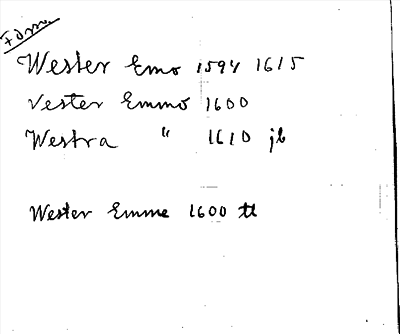 Wester Emo 1594 1615
Vester Emmo 1600
Westra " 1610 jb
Wester Emme 1600 tt